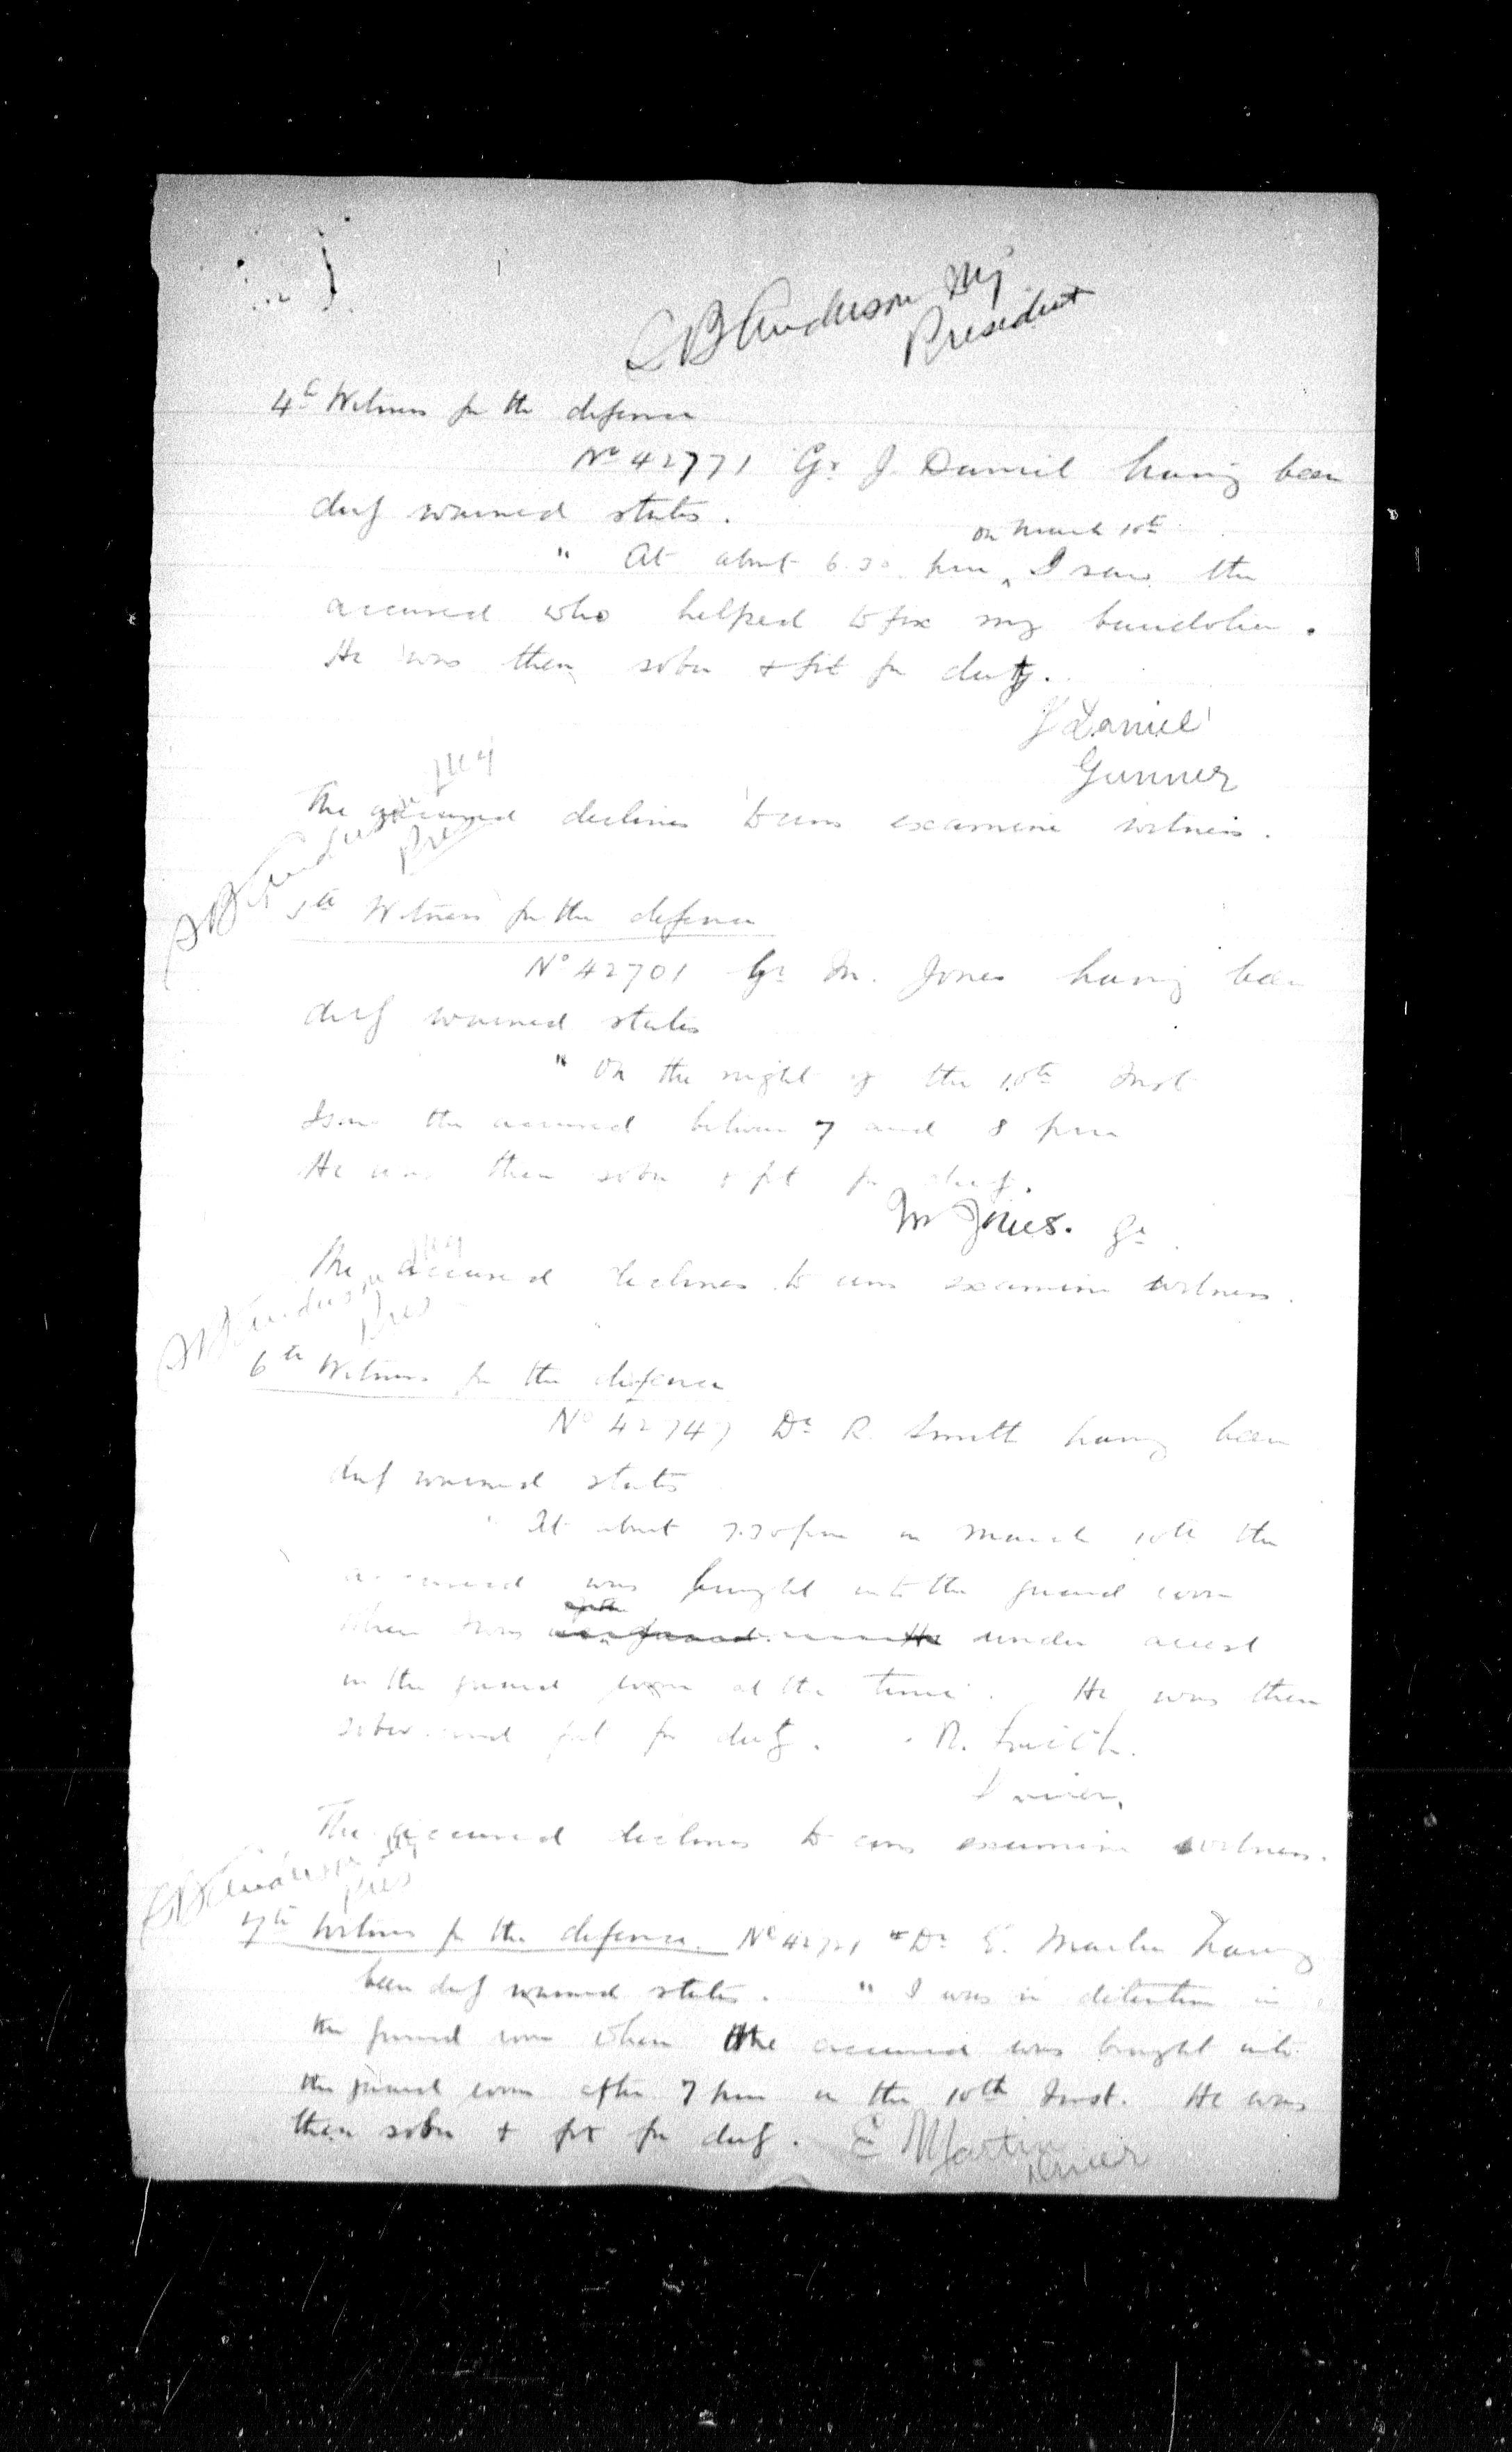 S B Anderson Mj
President
4th Witness for the defence
No 42771 Gr J. Daniel having been
duly warned states.
on March 10th
" At about 6.30 pm ^ I saw the
accused who helped to fix my bandolier.
He was then sober & fit for duty.
J Daniel
Gunner
The accused declines to cross examine witness.
Anderson Maj
Pres
5th Witness for the defence
No 42701 Gr M. Jones having been
duly warned states
" On the night of the 10th Inst
I saw the accused between 7 and 8 pm
He was then sober & fit for duty.
M Jones. Gr.
The accused declines to cross examine witness.
Anderson Maj
Pres
6th Witness for the defence
No 42747 Dr R. Smith having been
duly warned states
" At about 7.30 pm on March 10th the
accused was brought into the guard room
when I was under arrest
in the guard room at the time. He was then
sober and fit for duty. R. Smith.
Driver.
The accused declines to cross examine witness.
Anderson
Pres
7th Witness for the defence. No 42721 Dr E. Martin having
been duly warned states. " I was in detention in
the guard room when the accused was brought into
the guard room after 7 pm on the 10th Inst. He was
then sober & fit for duty. E Martin
Driver